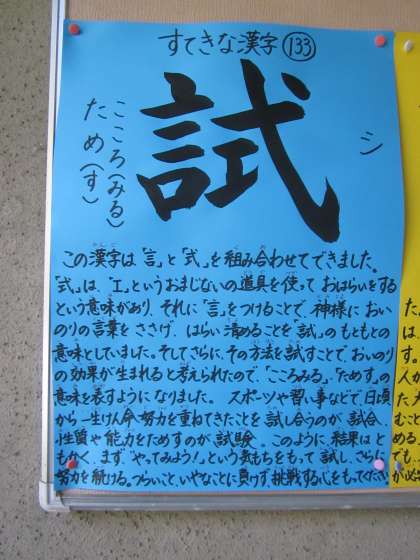 すてきな漢字 133
試
シ
こころ(みる)
ため(す)
この漢字は「言」と「式」を組み合わせてできました。
「式」は、“エ”というおまじないの道具を使って おはらいをする
という意味があり、それに「言」をつけることで、神様に おい
のりの言葉を ささげ、はらい清めることを「試」のもともとの
意味としていました。そしてさらに、その方法を試すことで、おいのり
の効果が生まれると考えられたので、「こころみる」、「ためす」の
意味を表すようになりました。 スポーツや習い事などで、日頃
から一生けん命努力を重ねてきたことを試し合うのが、試合、
性質や能力をためすのが、試験。 このように、結果はと
もかく、まず“やってみよう!”という気もちをもって 試し、さらに
努力を続ける。つらいこと、いやなことに負けず、挑戦する心をもってください
た。
は、
す。
人が
た大
むこ
める
でも
が必